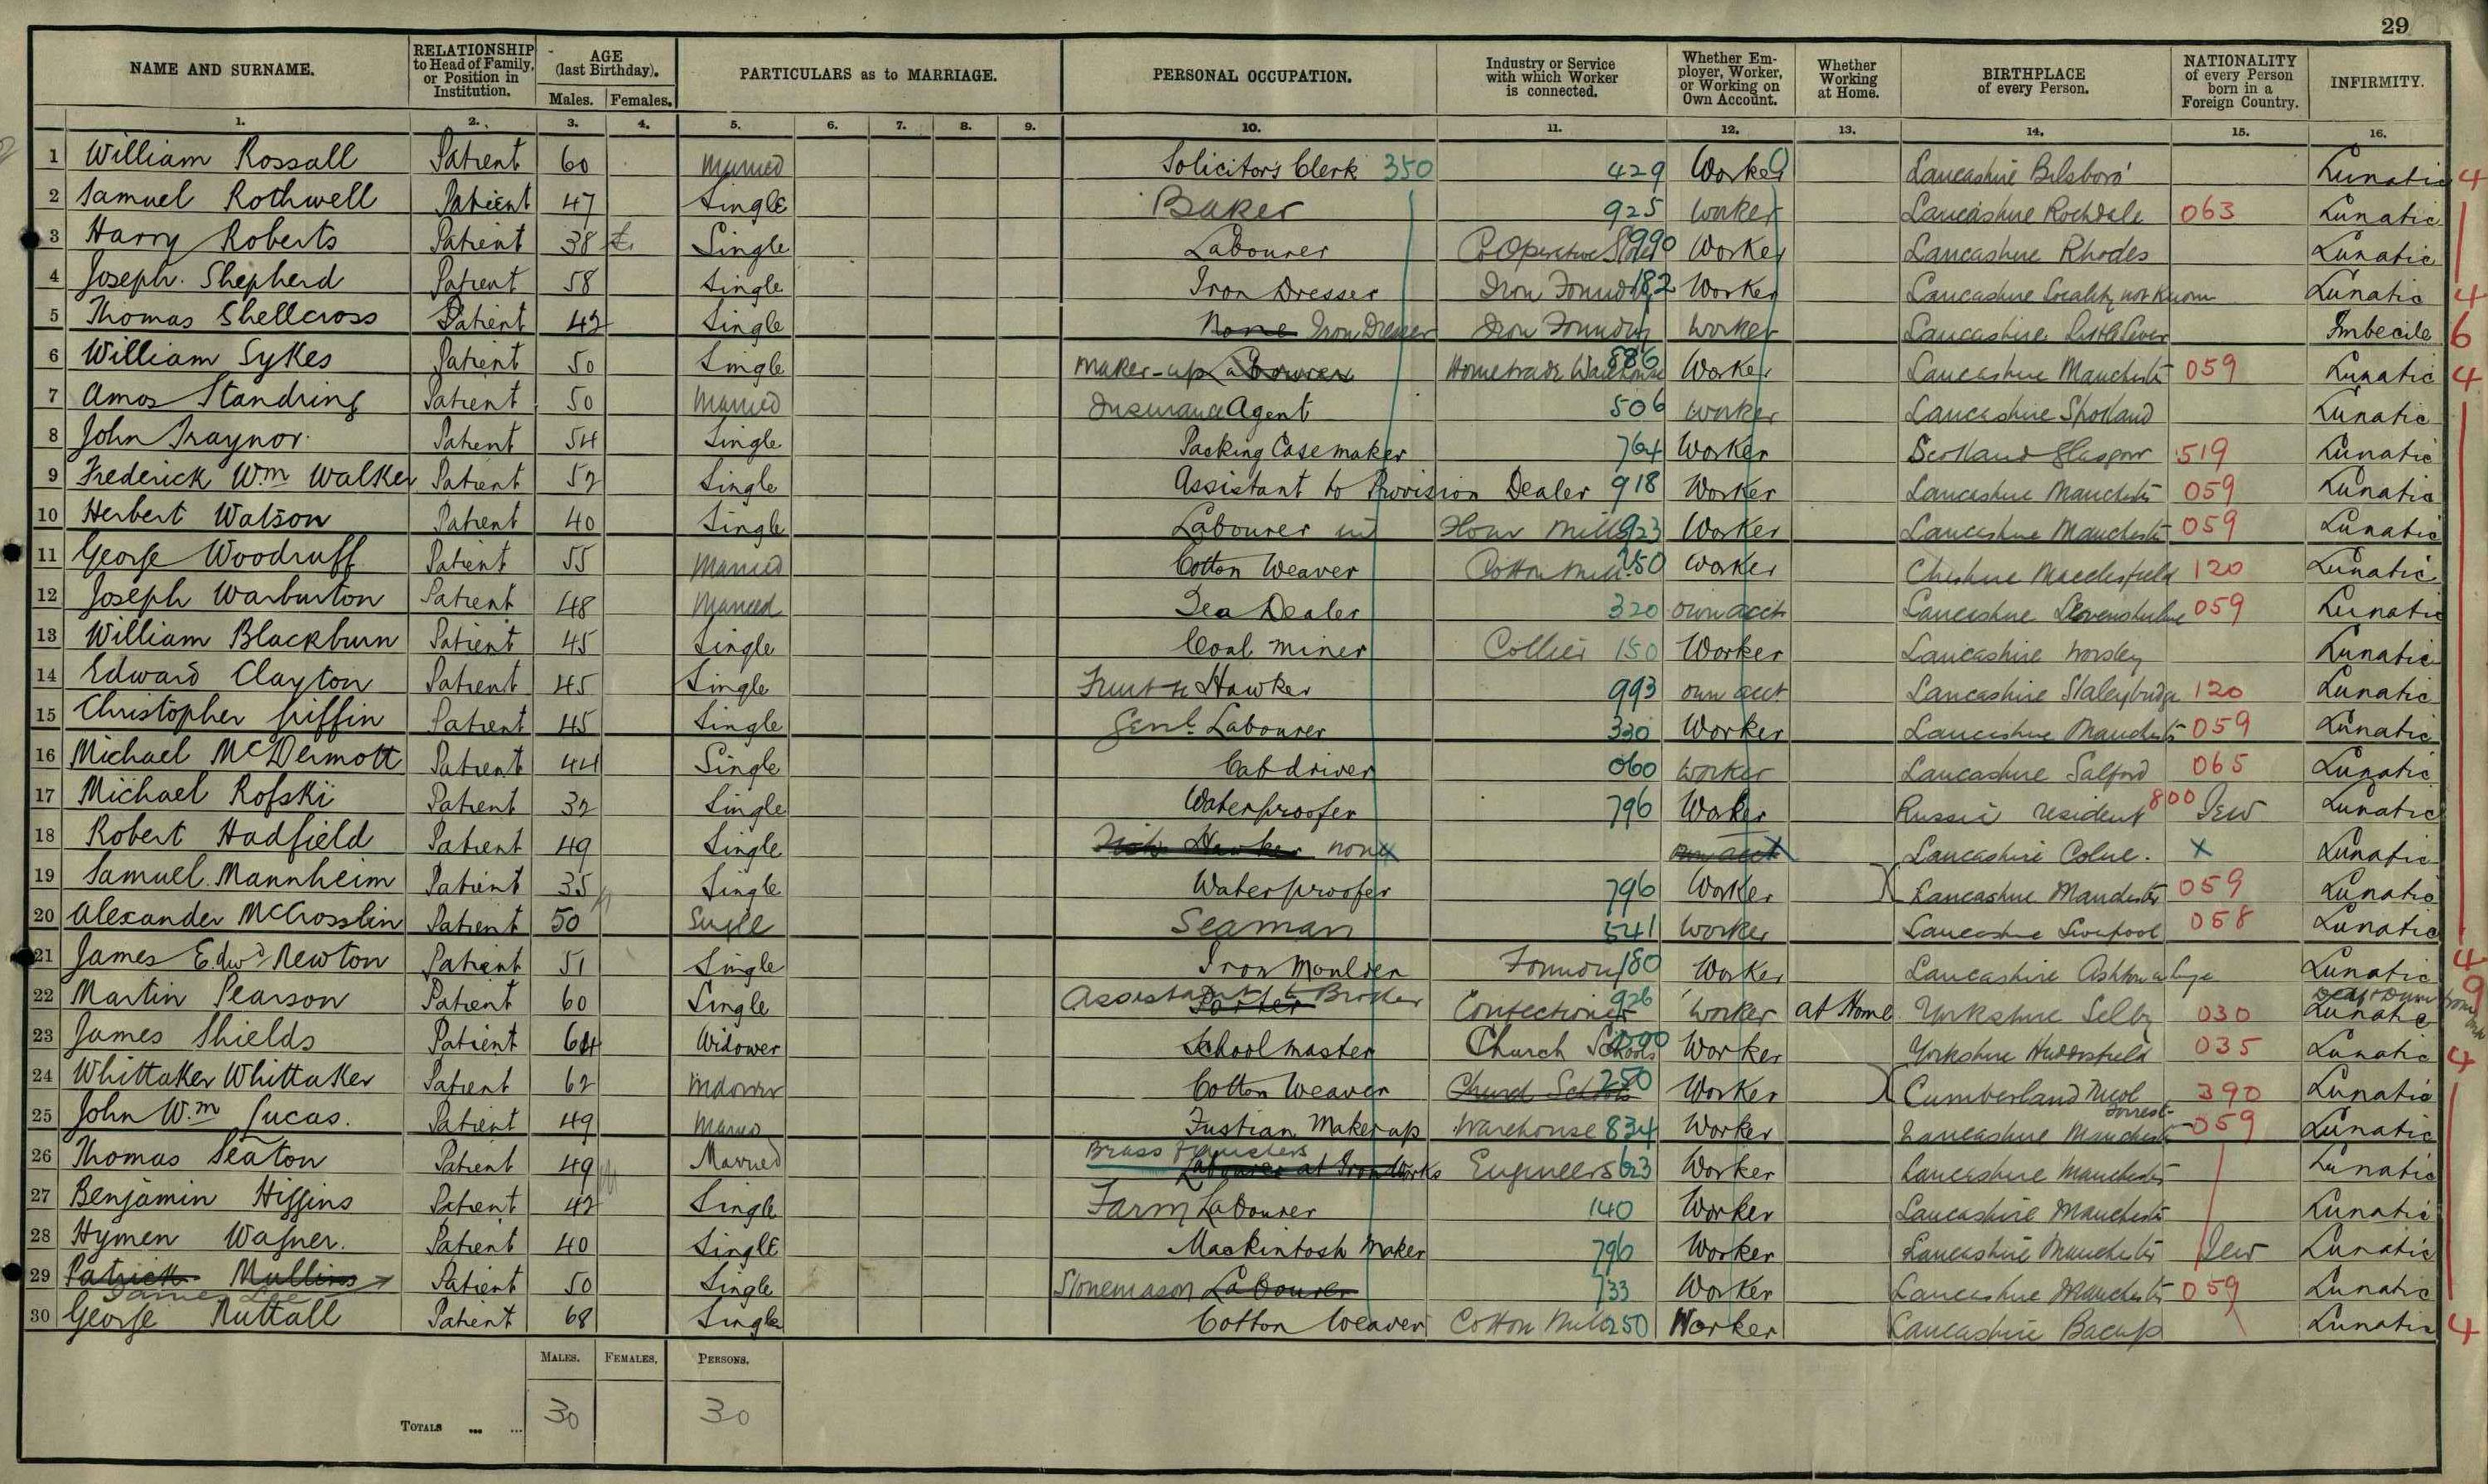 29
NAME AND SURNAME. RELATIONSHIP to Head of Family, or Position in Institution. AGE (last Birthday). Males. Females. PARTICULARS as to MARRIAGE. PERSONAL OCCUPATION. Industry or Service with which Worker is connected. Whether Employer, Worker, or Working on Own Account. Whether Working at Home. BIRTHPLACE of every Person. NATIONALITY of every Person born in a Foreign Country. INFIRMITY.
1. 2. 3. 4. 5. 6. 7. 8. 9. 10. 11. 12. 13. 14. 15. 16.
1 William Rossall Patient 60 Married Solicitor's Clerk 350 429 Worker Lancashire Bilsboro' Lunatic 4
2 Samuel Rothwell Patient 47 Single Baker 925 Worker Lancashire Rochdale 063 Lunatic
3 Harry Roberts Patient 38 Single Labourer CoOperative Store 990 Worker Lancashire Rhodes Lunatic
4 Joseph Shepherd Patient 58 Single Iron Dresser Iron Foundry 182 Worker Lancashire Locality not Known Lunatic 4
5 Thomas Shellcross Patient 42 Single None Iron Dresser Iron Foundry Worker Lancashire Little Lever Imbecile 6
6 William Sykes Patient 50 Single Maker-up Labourer Hometrade Warehouse 886 Worker Lancashire Manchester 059 Lunatic 4
7 Amos Standring Patient 50 Married Insurance Agent 506 Worker Lancashire Spotland Lunatic
8 John Traynor Patient 54 Single Packing Case maker 764 Worker Scotland Glasgow 519 Lunatic
9 Frederick Wm Walker Patient 52 Single Assistant to Provision Dealer 918 Worker Lancashire Manchester 059 Lunatic
10 Herbert Watson Patient 40 Single Labourer in Flour Mill 923 Worker Lancashire Manchester 059 Lunatic
11 George Woodruff Patient 55 Married Cotton Weaver Cotton Mill 250 Worker Cheshire Macclesfield 120 Lunatic
12 Joseph Warburton Patient 48 Married Tea Dealer 320 own acct Lancashire Levenshulme 059 Lunatic
13 William Blackburn Patient 45 Single Coal Miner Collier 150 Worker Lancashire Worsley Lunatic
14 Edward Clayton Patient 45 Single Fruit Hawker 993 own acct Lancashire Staleybridge 120 Lunatic
15 Christopher Giffin Patient 45 Single Genl. Labourer 330 Worker Lancashire Manchester 059 Lunatic
16 Michael McDermott Patient 44 Single Cabdriver 060 Worker Lancashire Salford 065 Lunatic
17 Michael Rofski Patient 32 Single Waterproofer 796 Worker Russia resident 800 Jew Lunatic
18 Robert Hadfield Patient 49 Single Fish Hawker none own acct Lancashire Colne. X Lunatic
19 Samuel Mannheim Patient 35 Single Waterproofer 796 Worker Lancashire Manchester 059 Lunatic
20 Alexander McCrosslin Patient 50 Single Seaman 541 Worker Lancashire Liverpool 058 Lunatic
21 James Edwd Newton Patient 51 Single Iron Moulder Foundry 180 Worker Lancashire Ashton u Lyne Lunatic 4
22 Martin Pearson Patient 60 Single Assistant to Broker Porter Confectioner 926 Worker at Home Yorkshire Selby 030 Deaf & Dumb from Lunatic 9
23 James Shields Patient 64 Widower Schoolmaster Church Schools Worker Yorkshire Huddersfield 035 Lunatic 4
24 Whittaker Whittaker Patient 62 Widower Cotton Weaver Church Schools 250 Worker Cumberland Nicol Forrest 390 Lunatic
25 John Wm Lucas. Patient 49 Married Fustian Maker up Warehouse 834 Worker Lancashire Manchester 059 Lunatic
26 Thomas Seaton Patient 49 Married Brass Finishers Labourer at Iron Works Engineers 623 Worker Lancashire Manchester Lunatic
27 Benjamin Higgins Patient 42 Single Farm Labourer 140 Worker Lancashire Manchester Lunatic
28 Hymen Wagner. Patient 40 Single Mackintosh Maker 796 Worker Lancashire Manchester Jew Lunatic
29 Patrick Mullins James Lee Patient 50 Single Stonemason Labourer 733 Worker Lancashire Manchester 059 Lunatic
30 George Nuttall Patient 68 Single Cotton Weaver Cotton Mill 250 Worker Lancashire Bacup Lunatic 4
MALES. FEMALES. PERSONS.
TOTALS ... ... 30 30